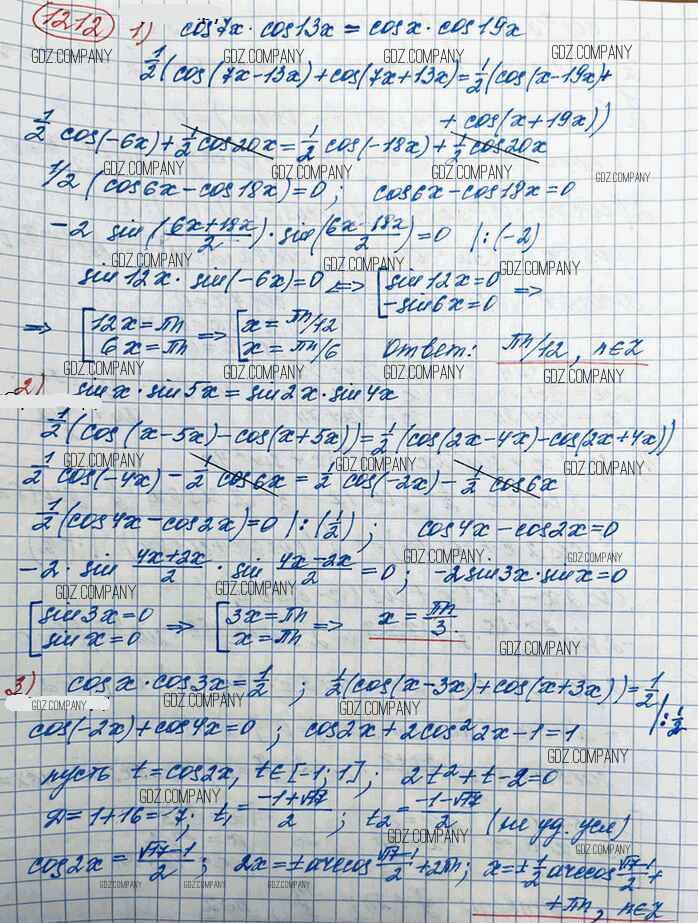 1212 1) cos7x · cos13x = cosx · cos19x
GDZ.COMPANY GDZ.COMPANY GDZ.COMPANY GDZ.COMPANY
1/2(cos(7x-13x)+cos(7x+13x)=1/2(cos(x-19x)+
+ cos(x+19x))
1/2 cos(-6x)+1/2cos20x=1/2 cos(-18x)+1/2 cos20x
GDZ.COMPANY GDZ.COMPANY GDZ.COMPANY GDZ.COMPANY
1/2 (cos6x-cos18x)=0; cos6x-cos18x=0
-2 sin(6x+18x/2)·sin(6x-18x/2)=0 |:(-2)
GDZ.COMPANY GDZ.COMPANY GDZ.COMPANY
sin12x· sin(-6x)=0 <=> [sin12x=0 =>
-sin6x=0
=> [12x=πn => [x=πn/12
6x=πn x=πn/6 Ответ: πn/12, n∈Z
GDZ.COMPANY GDZ.COMPANY GDZ.COMPANY GDZ.COMPANY
2) sinx·sin5x=sin2x·sin4x
1/2(cos(x-5x)-cos(x+5x))=1/2(cos(2x-4x)-cos(2x+4x))
GDZ.COMPANY GDZ.COMPANY GDZ.COMPANY
1/2 cos(-4x)-1/2 cos6x=1/2 cos(-2x)-1/2 cos6x
1/2(cos4x-cos2x)=0 |:(1/2); cos4x-cos2x=0
GDZ.COMPANY GDZ.COMPANY GDZ.COMPANY GDZ.COMPANY
-2·sin 4x+2x/2 · sin 4x-2x/2 =0; -2sin3x·sinx=0
GDZ.COMPANY GDZ.COMPANY GDZ.COMPANY
[sin3x=0 => [3x=πn => x=πn/3.
sinx=0 x=πn
GDZ.COMPANY
3) cosx·cos3x=1/2; 1/2(cos(x-3x)+cos(x+3x))=1/2 |:1/2
GDZ.COMPANY GDZ.COMPANY GDZ.COMPANY GDZ.COMPANY
cos(-2x)+cos4x=0; cos2x+2cos²2x-1=1
GDZ.COMPANY
пусть t=cos2x, t∈[-1;1]; 2t²+t-2=0
GDZ.COMPANY
D=1+16=17; t1=-1+√17/2; t2=-1-√17/2 (не уд. усл)
GDZ.COMPANY
cos2x=√17-1/2; 2x=±arccos √17-1/2+2πn; x=±1/2arccos √17-1/2+
GDZ.COMPANY GDZ.COMPANY GDZ.COMPANY GDZ.COMPANY
+πn, n∈Z